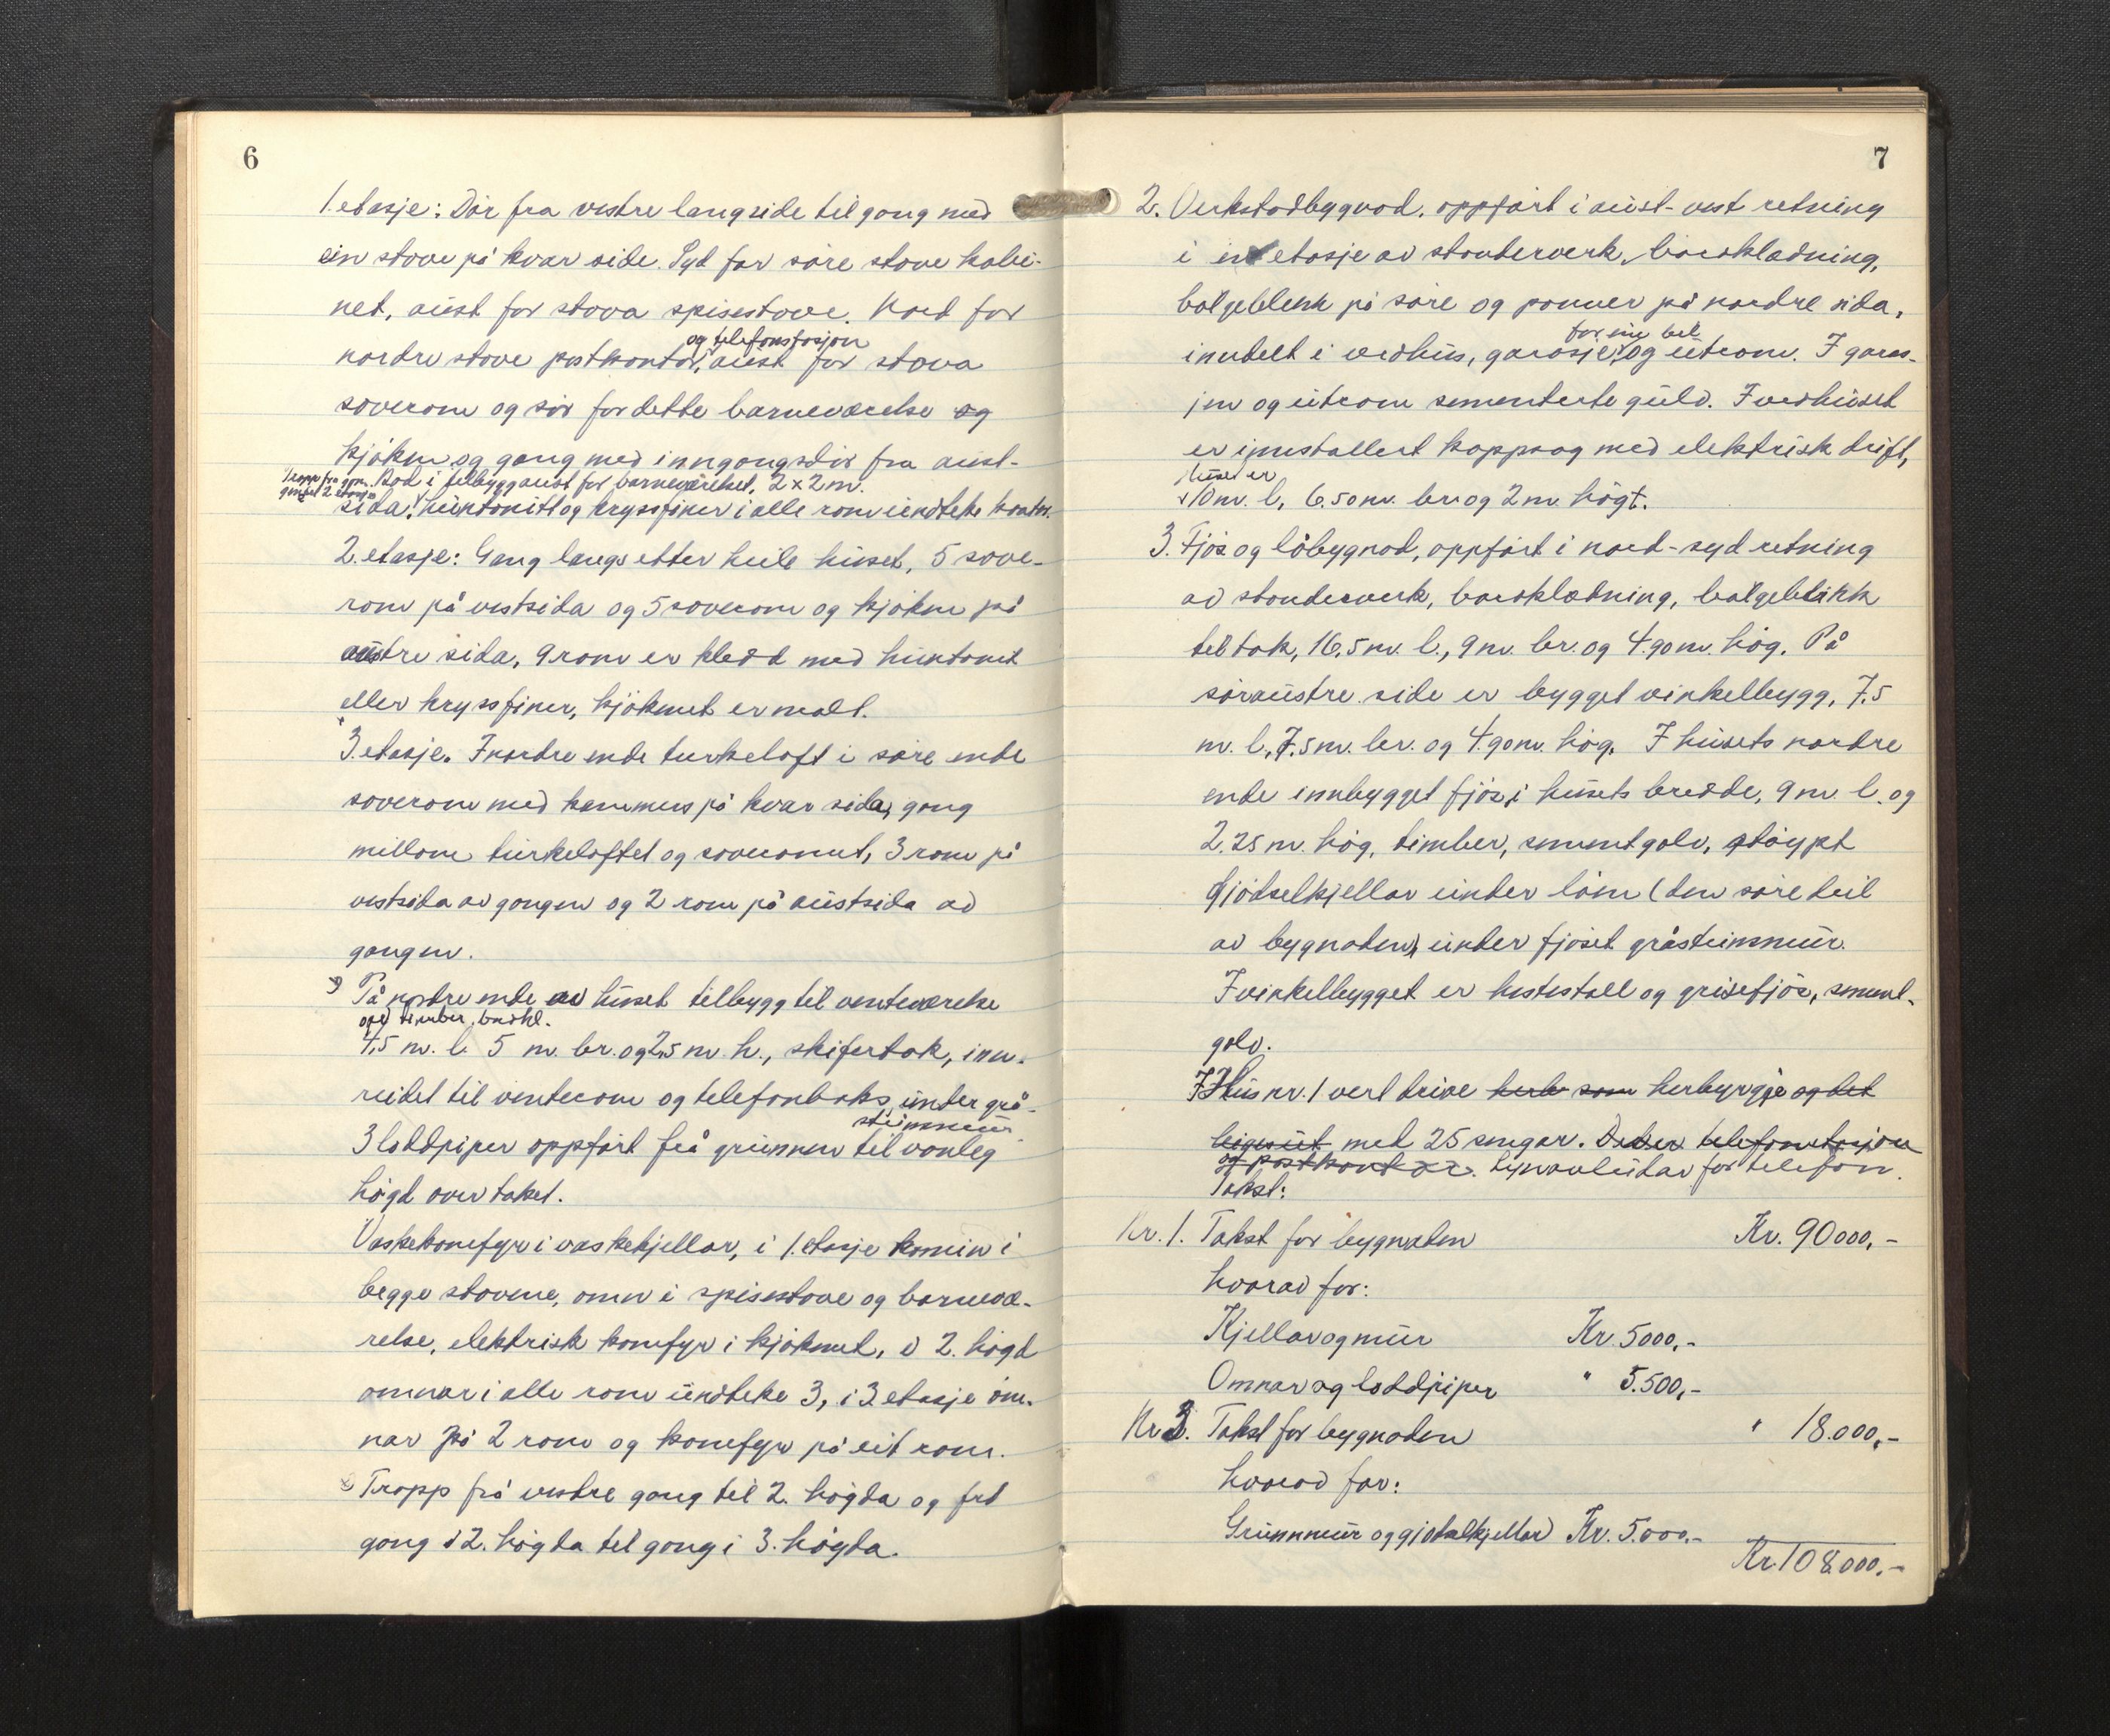 6
1. etasje: Dör fra vestre langside til gong med
ein stove på kvar side. Syd for söre stove kabi-
net, aust for stova spisestove. Nord for
og telefonstasjon
nordre stove postkontor, aust for stova
soverom og sör for dette barneværelse og
kjöken og gang med inngongsdör fra aust-
Bod i tilbygg aust for barneværelset, 2 x 2 m.
sida. Huntonitt og kryssfiner i alle rom undteke kontor.
2. etasje: Gang langs etter heile huset, 5 sove-
rom på vestsida og 5 soverom og kjöken på
austre sida, 9 rom er kledd med huntonit
eller kryssfiner, kjöknet er malt.
3. etasje. I nordre ende turkeloft i söre ende
soverom med kammers på kvar sida, gong
millom turkeloftet og soveromet, 3 rom på
vestsida av gongen og 2 rom på austsida av
gongen.
På nordre ende av huset tilbygg til venteværelse
opf. timber, bordkl.
4,5 m. l. 5 m. br. og 2,5 m. h., skifertak, inn-
reidet til venterom og telefonboks, under grå-
steinsmur
3 loddpiper oppfört frå grunnen til vanleg
högd over taket.
Vaskekomfyr i vaskekjellar, i 1. etasje kamin i
begge stovene, omn i spisestove og barnevæ-
relse, elektrisk komfyr i kjöknet, i 2. högd
omnar i alle rom undteke 3, i 3 etasje om-
nar på 2 rom og komfyr på eit rom.
Tropp frå vestre gong til 2. högda og frå
gong i 2. högda til gong i 3. högda.
7
2. Verkstadbygnad, oppfört i aust-vest retning
i en etasje av stenderverk, bordkledning,
bölgeblekk på söre og panner på nordre sida,
for ein bil
inndelt i vedhus, garasje og uterom. I gara-
jen og uterom sementerte gulv. I vedhuset
er innstallert kappsag med elektrisk drift,
Huset er
10 m. l, 6.50 m. br. og 2 m. högt.
3. Fjös og löbygnad, oppfört i nord-syd retning
av stenderverk, bordkledning, bölgeblikk
til tak, 16,5 m. l., 9 m. br. og 4.90 m. hög. På
söraustre side er bygget vinkelbygg, 7,5
m. l., 7.5 m. br. og 4.90 m. hög. I husets nordre
ende innbygget fjös, i husets bredde, 9 m. l. og
2.25 m. hög, timber, sementgolv, stöypt
gjödselkjellar under löen (den söre deil
av bygnaden), under fjöset gråsteinsmur.
I vinkelbygget er hestestall og grisefjös, sement-
golv.
I Hus nr. 1 vert drive herb som herbyrgje og det
leiges ut med 25 sengar. Det er telefonstasjon
og postkontor. for telefon.
Takst:
Nr. 1. Takst for bygnaden Kr. 90000,-
hvorav for:
Kjellar og mur Kr. 5000,-
Omnar og loddpiper " 5.500,-
Nr 3. Takst for bygnaden " 18.000,-
hvorav for:
Grunnmur og gjödselkjellar Kr. 5.000,-
Kr. 108.000,-